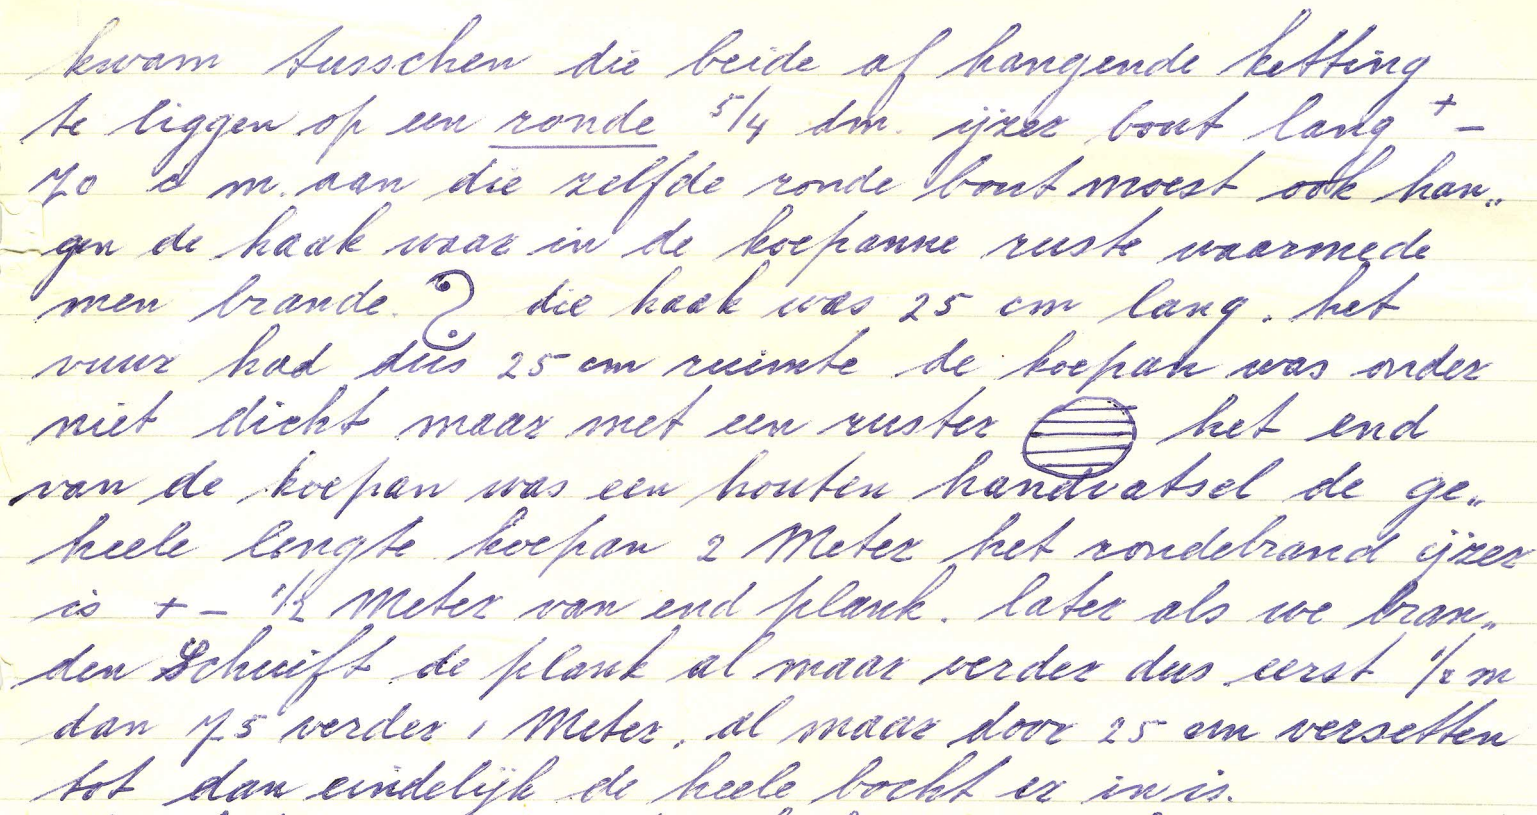 kwam tusschen die beide af hangende ketting
te liggen op een ronde 5/4 dm. ijzer bout lang + -
70 c m. aan die zelfde ronde bout moest ook han„
gen de haak waar in de koepanne ruste waarmede
men brande. die haak was 25 cm lang. het
vuur had dus 25 cm ruimte de koepan was onder
niet dicht maar met een ruster het end
van de koepan was een houten handvatsel de ge„
heele lengte koepan 2 Meter het rondebrand ijzer
is + - 1/2 Meter van end plank. later als we bran„
den Schuift de plank al maar verder dus eerst 1/2 m
dan 75 verder 1 Meter, al maar door 25 cm versetten
tot dan eindelijk de heele bocht er in is.